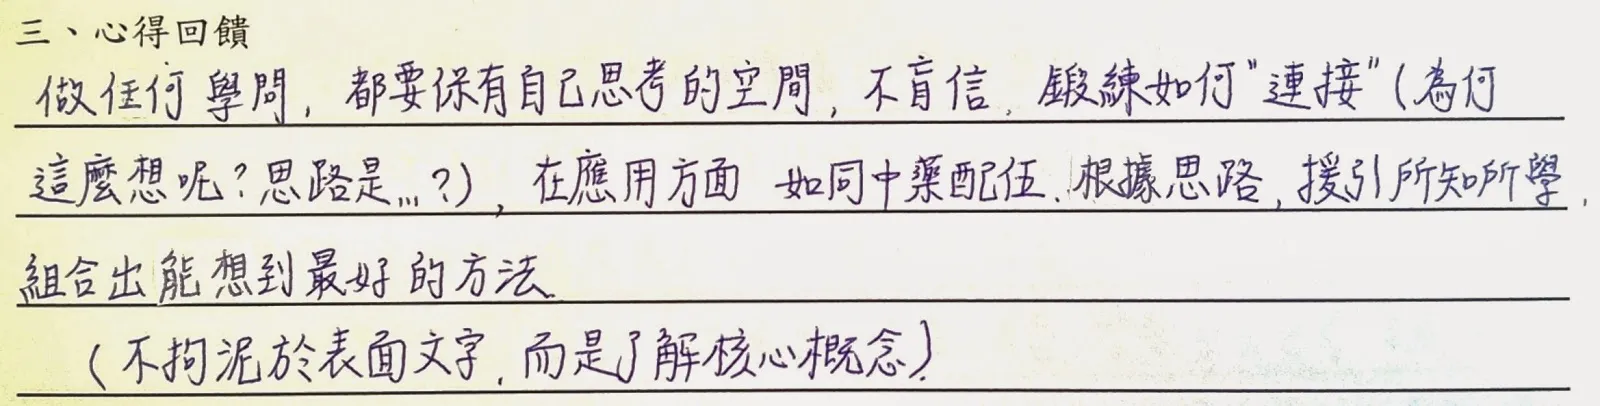 三、心得回饋
做任何學問，都要保有自己思考的空間，不盲信，鍛練如何"連接"（為何
這麼想呢？思路是...？），在應用方面 如同中藥配伍．根據思路，援引所知所學，
組合出能想到最好的方法．
（不拘泥於表面文字，而是了解核心概念）．